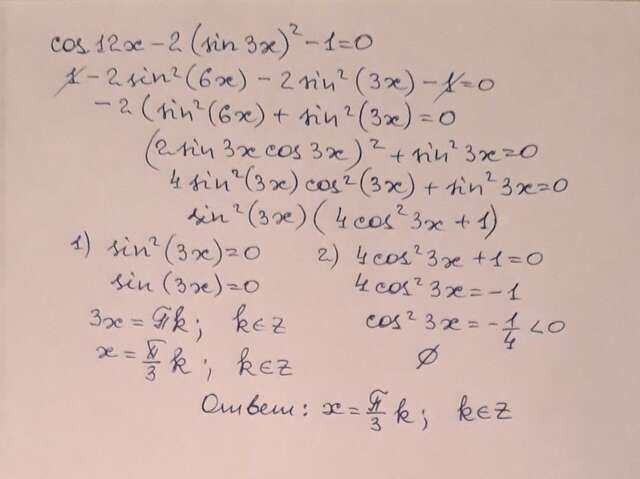 cos 12x - 2 (sin 3x)² - 1 = 0
1 - 2 sin² (6x) - 2 sin² (3x) - 1 = 0
- 2 (sin² (6x) + sin² (3x) = 0
(2 sin 3x cos 3x)² + sin² 3x = 0
4 sin² (3x) cos² (3x) + sin² 3x = 0
sin² (3x) (4 cos² 3x + 1)
1) sin² (3x) = 0 2) 4 cos² 3x + 1 = 0
sin (3x) = 0 4 cos² 3x = -1
3x = πk; k∈Z cos² 3x = -1/4 < 0
x = π/3 k; k∈Z ∅
Ответ: x = π/3 k; k∈Z